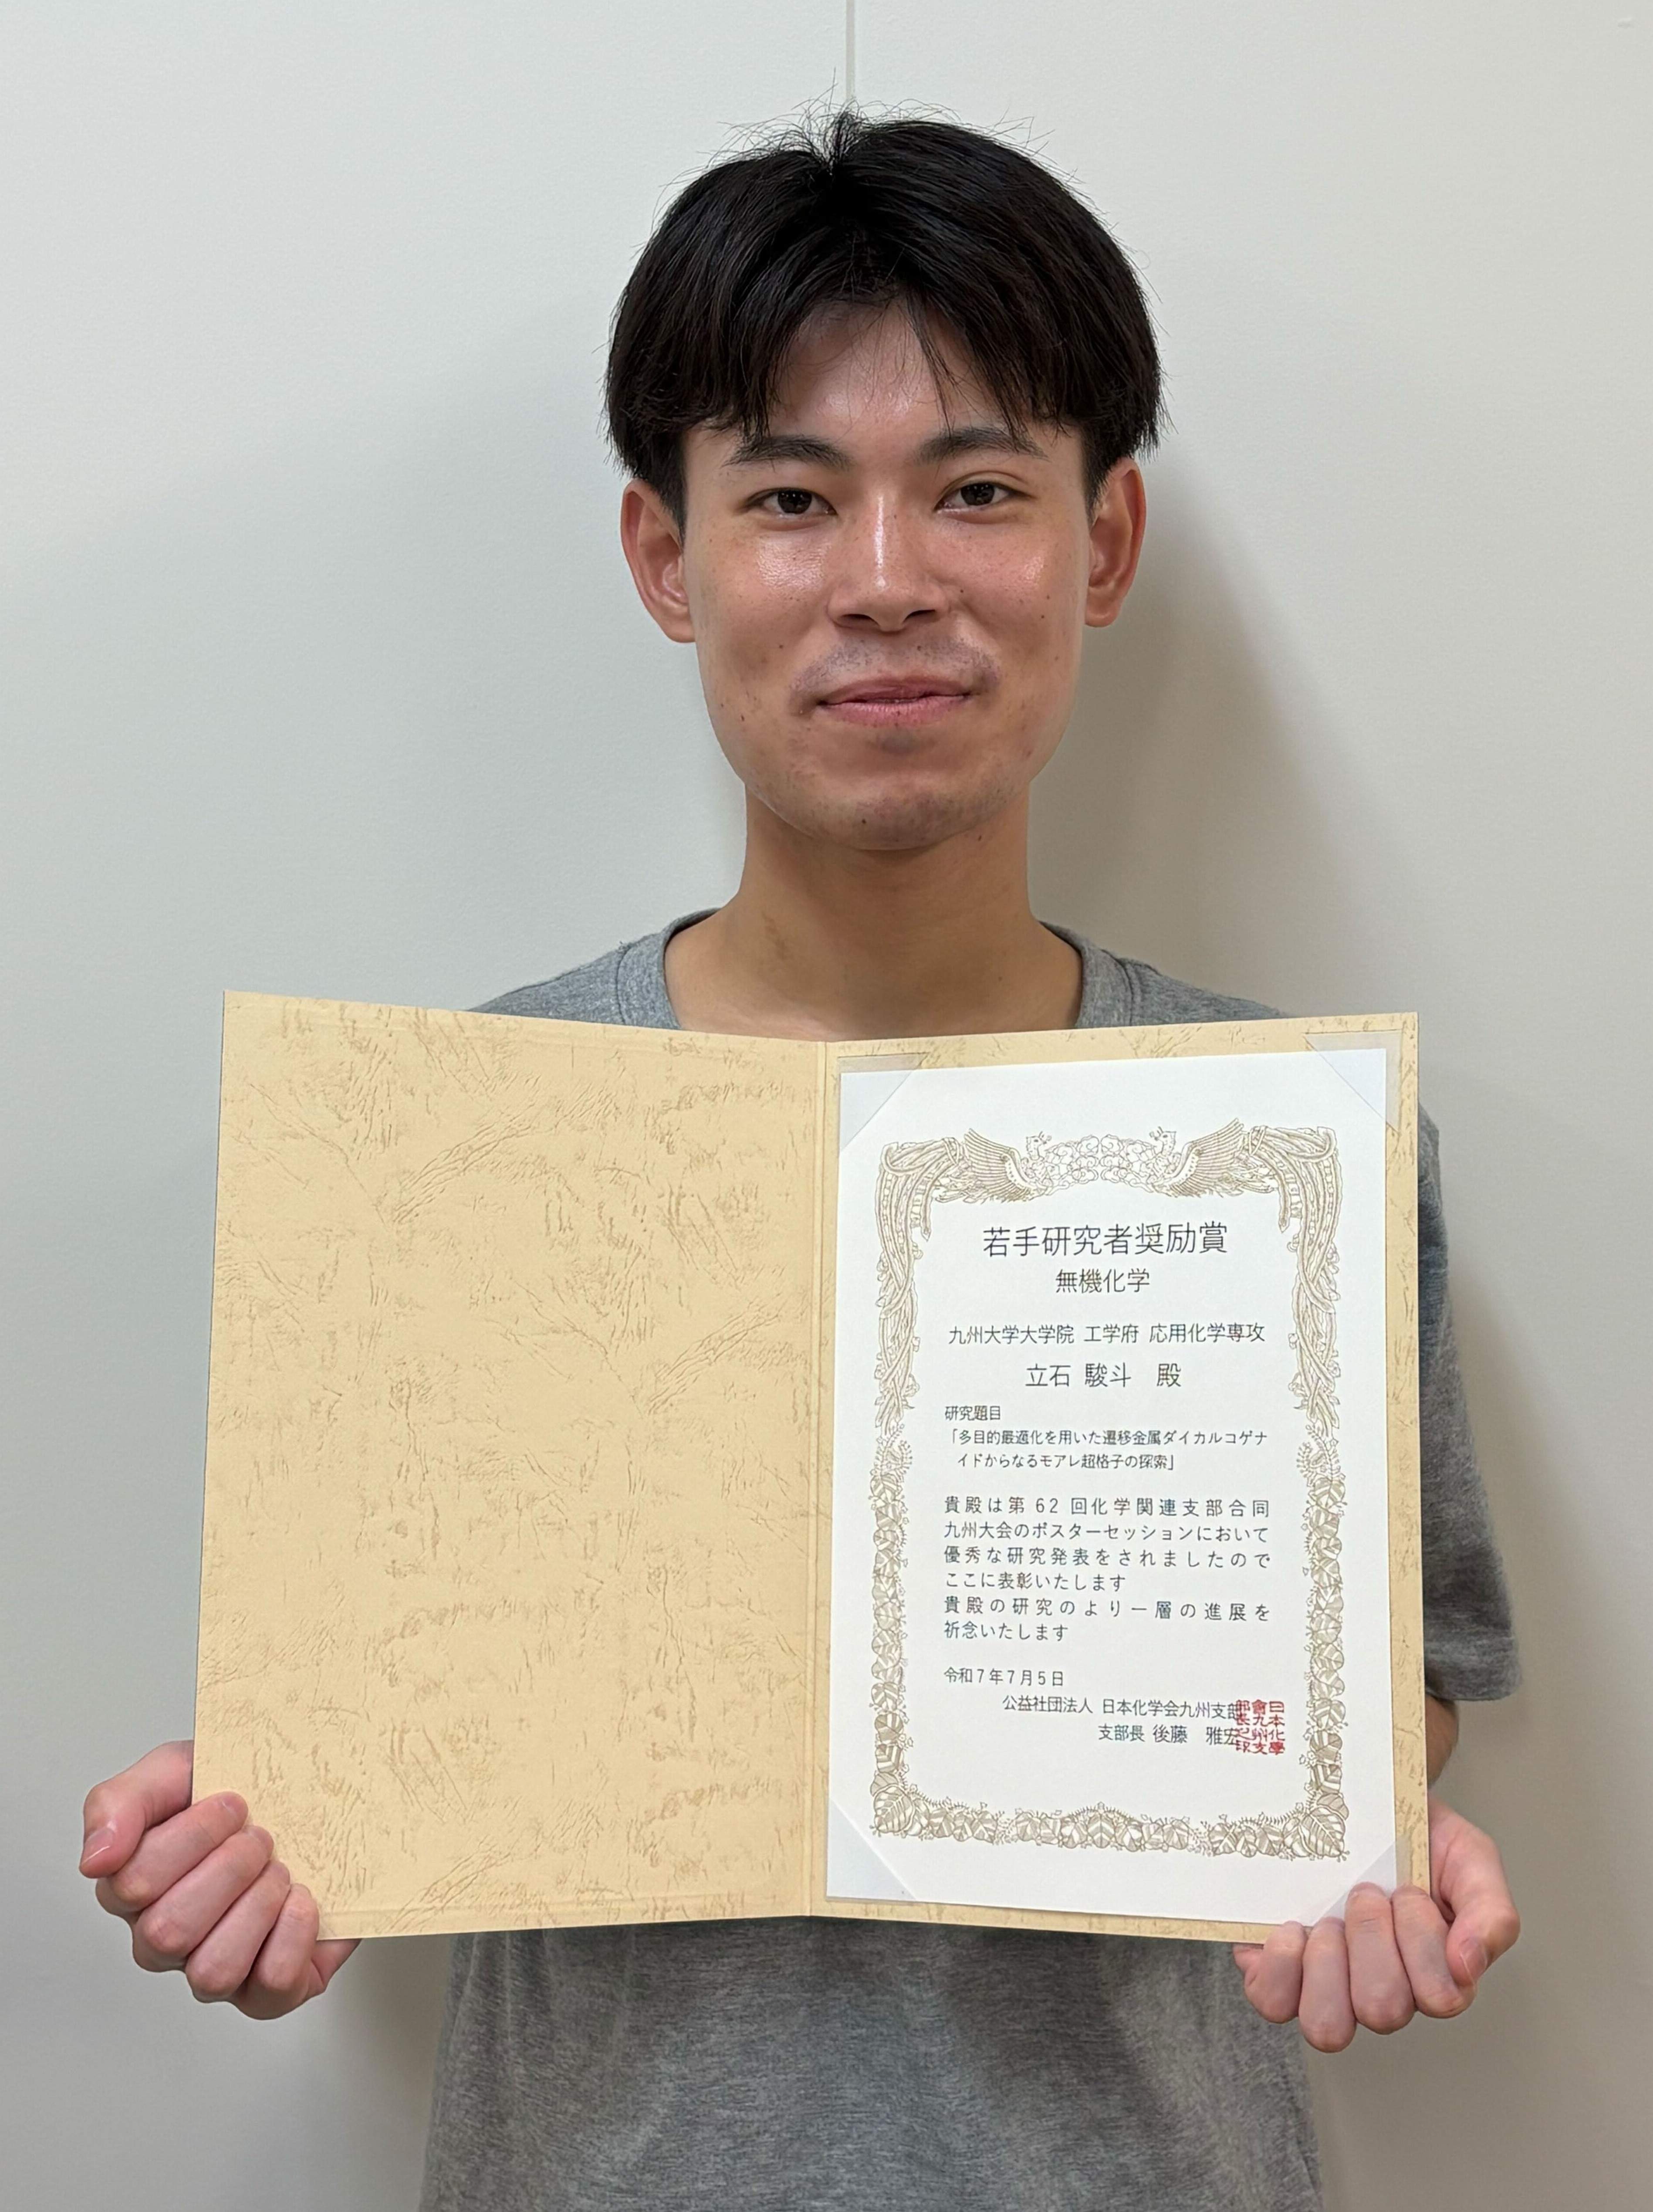 若手研究者奨励賞
無機化学
九州大学大学院 工学府 応用化学専攻
立石 駿斗 殿
研究題目
「多目的最適化を用いた遷移金属ダイカルコゲナ
イドからなるモアレ超格子の探索」
貴殿は第 62 回化学関連支部合同
九州大会のポスターセッションにおいて
優秀な研究発表をされましたので
ここに表彰いたします
貴殿の研究のより一層の進展を
祈念いたします
令和7年7月5日
公益社団法人 日本化学会九州支部
支部長 後藤 雅宏
日本化學
會九州支
部長之印